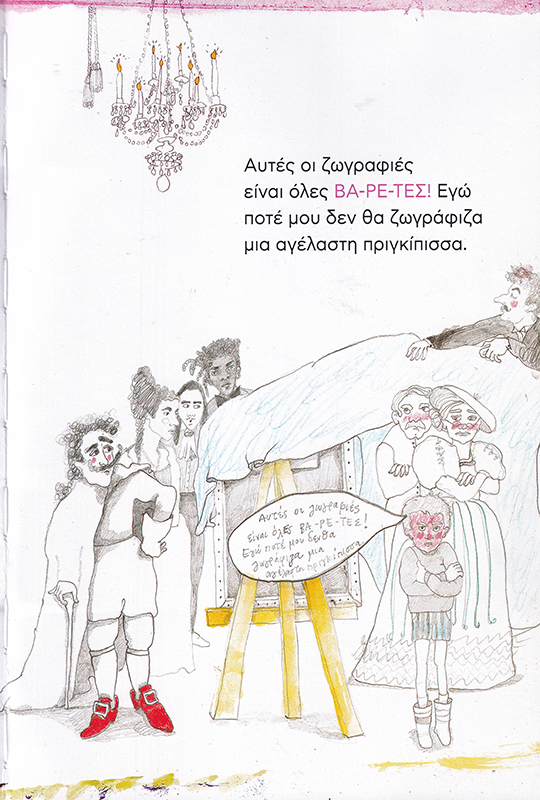 Αυτές οι ζωγραφιές
είναι όλες ΒΑ-ΡΕ-ΤΕΣ! Εγώ
ποτέ μου δεν θα ζωγράφιζα
μια αγέλαστη πριγκίπισσα.
Αυτές οι ζωγραφιές
είναι όλες ΒΑ-ΡΕ-ΤΕΣ!
Εγώ ποτέ μου δεν θα
ζωγράφιζα μια
αγέλαστη πριγκίπισσα